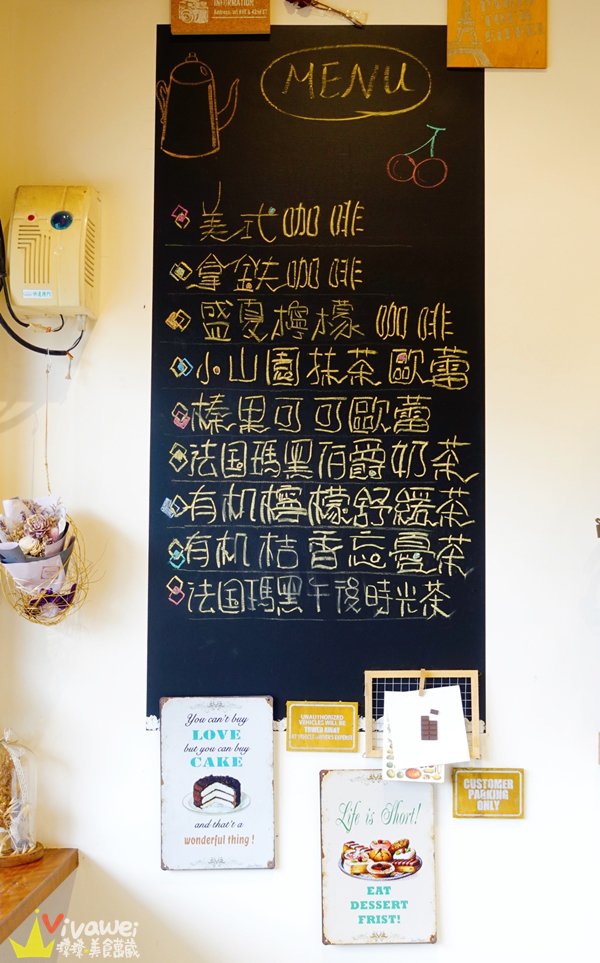 INFORMATION
MENU
美式咖啡
拿鉄咖啡
盛夏檸檬 咖啡
小山園抹茶歐蕾
榛果可可歐蕾
法国瑪黑伯爵奶茶
有机檸檬舒緩茶
有机桔香忘憂茶
法国瑪黑午後時光茶
You can't buy
LOVE
but you can buy
CAKE
and that's a
wonderful thing!
UNAUTHORIZED
VEHICLES WILL BE
TOWED AWAY
AT VEHICLE OWNER'S EXPENSE
CUSTOMER
PARKING
ONLY
Life is Short!
EAT
DESSERT
FRIST!
Vivawei
美食萬歲